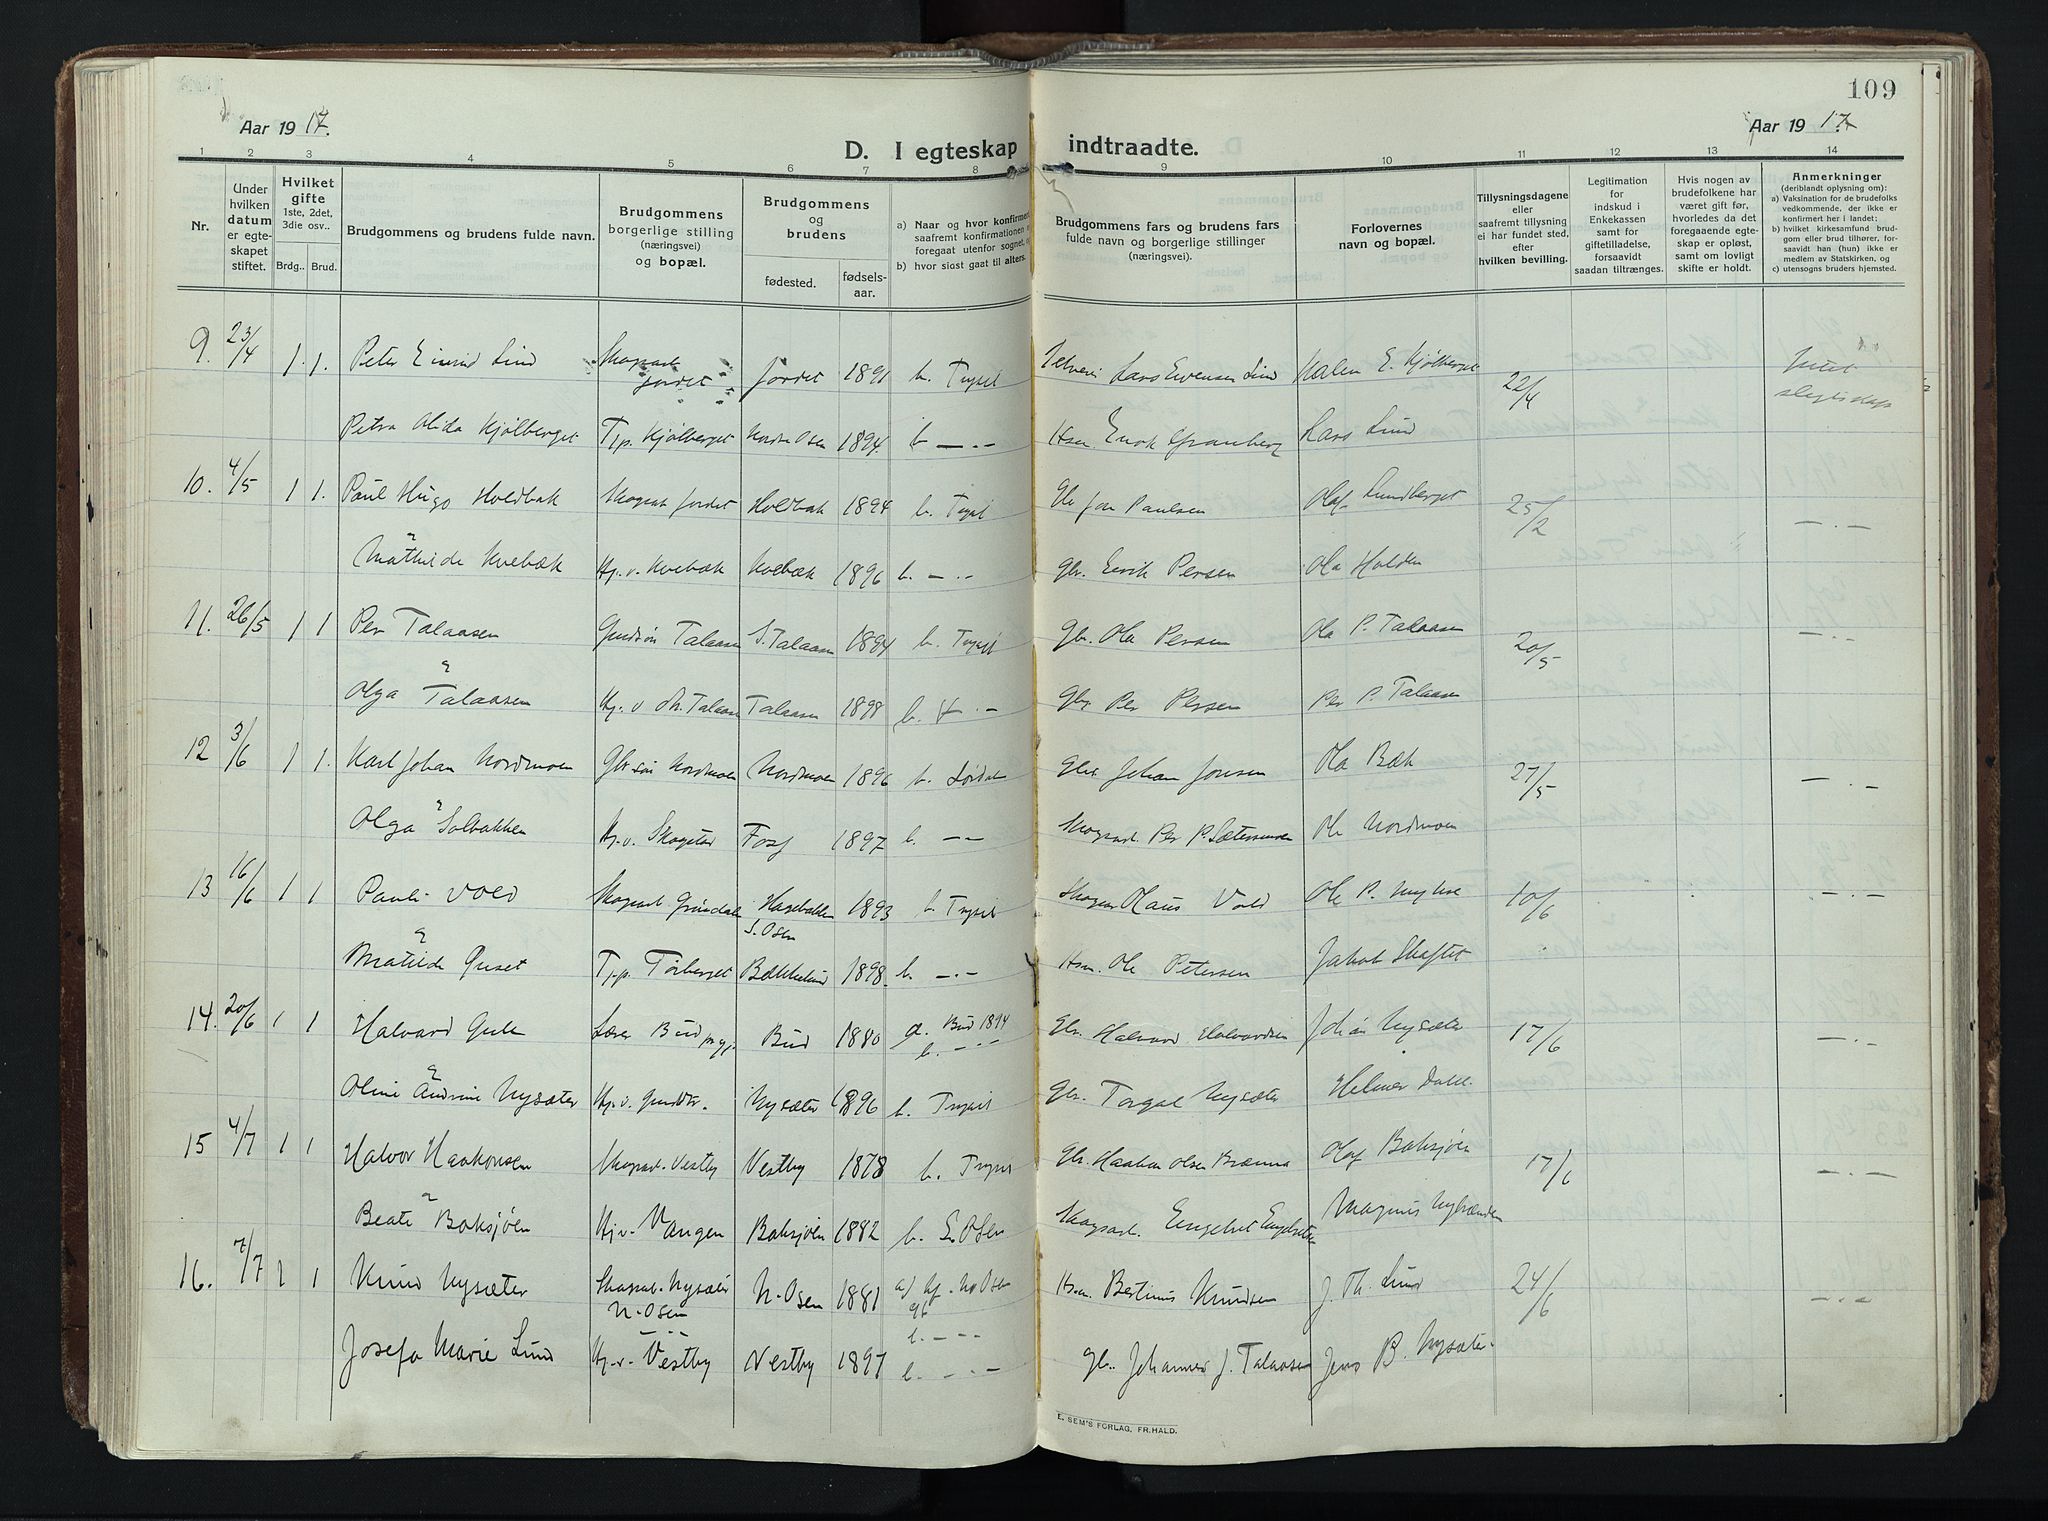 109
Aar 1917.
Aar 1917
D. I egteskap indtraadte.
1 2 3 4 5 6 7 8 9 10 11 12 13 14
Nr.
Under hvilken datum er egteskapet stiftet.
Hvilket gifte 1ste, 2det, 3die osv..
Brdg.. Brud.
Brudgommens og brudens fulde navn.
Brudgommens borgerlige stilling (næringsvei) og bopæl.
Brudgommens og brudens
fødested.
fødselsaar.
a) Naar og hvor konfirmert saafremt konfirmationen foregaat utenfor sognet,
b) hvor sidst gaat til alters.
Brudgommens fars og brudens fars fulde navn og borgerlige stillinger (næringsvei).
Forlovernes navn og bopæl.
Tillysningsdagene eller saafremt tillysning ei har fundet sted, efter hvilken bevilling.
Legitimation for indskud i Enkekassen samt for giftetilladelse, forsaavidt saadan tiltrænges.
Hvis nogen av brudefolkene har været gift før, hvorledes da det foregaaende egteskap er opløst, samt om lovligt skifte er holdt.
Anmerkninger (deriblandt oplysning om):
a) Vaksination for de brudefolks vedkommende, der ikke er konfirmert her i landet;
b) hvilket kirkesamfund brudgom eller brud tilhører, forsaavidt han (hun) ikke er medlem av Statskirken, og
c) utensogns bruders hjemsted.
9. 23/4 1. 1. Peter Einrid Lind Skogsarb. Jordet Jordet 1891 b. Trysil Lars Evensen Lind Halen E. Kjølberget 22/4 Intet slegtskap
Petra Alida Kjølberget Tjp. Kjølberget Nordre Osen 1894. b. — . — Hsm. Lars Lind
10. 4/5 1 1. Paul Hugo Holdbak Skogsarb. Jordet Holdbak 1894 b. Trysil Gbr. Jon Paulsen Olaf Lundberget 25/2 — . —
& Mathilde Kvebæk Hj. v. Kvebæk Kvebæk 1896 b. — . — Gbr. Eerik Persen Ola Holden
11. 26/5 1 1 Per Talaasen Gaardsøn Talaasen S. Talaasen 1894 b. Trysil Gbr. Ola Persen Ola P. Talaasen 20/5 — . —
& Olga Talaasen Hj. v. Talaasen Talaasen 1898 b. — . — Gbr. Per Persen Per P. Talaasen
12 3/6 1 1. Karl Johan Nordmoen Gbr. søn Nordmoen Nordmoen 1896 b. Lørdalen Gbr. Johan Jonsen Ola Bæk 27/5 — . —
& Olga Solbakken Hj. v. Skogstad Foss 1897 b. — — Skogsarb. Per P. Sætermoen Ole Nordmoen
13 16/6 1 1 Pauli Vold Skogsarb. Grøndalen Hagebakken S. Osen 1893 b. Trysil Skogsarb. Olaus Vold Ole P. Nyhus 10/6 — . —
& Matilde Galaset Tjp. Tørberget Bækkelund 1898. b. — . — Hsm. Ole Petersen Jakob Skaftet
14. 20/6 1 1 Halvard Gule Lærer Bud Bud 1880 a. Bud 1894 b. — . — Gbr. Halvard Halvardsen Johan Nysæter 17/6 — . —
& Oline Andrine Nysæter Hj. v. Nysæter 1896 b. Trysil Gbr. Torgal Nysæter Helmer Dahl.
15 4/7 1 1 Halvor Haakonsen Skogsarb. Vestby Vestby 1878 b. Trysil Gbr. Haakon Olsen Brænna Olaf Baksjøen 17/6 — . —
& Beate Baksjøen Hj. v. Vangen Baksjøen 1882 b. S. Osen Skogsarb. Engebret Magnus Nybrænden
16. 7/7 1 1 Knud Nysæter Skogsarb. Nysæter N. Osen N. Osen 1881 b. — . — Hsm. Bertinus Knudsen J. Th. Lund 24/6 — . —
Josefa Marie Lund Hj. v. Vestby Vestby 1897 b. — . — Gbr. Johannes J. Talaasen Jens B. Nysæter.
E. SEM'S FORLAG, FR.HALD.